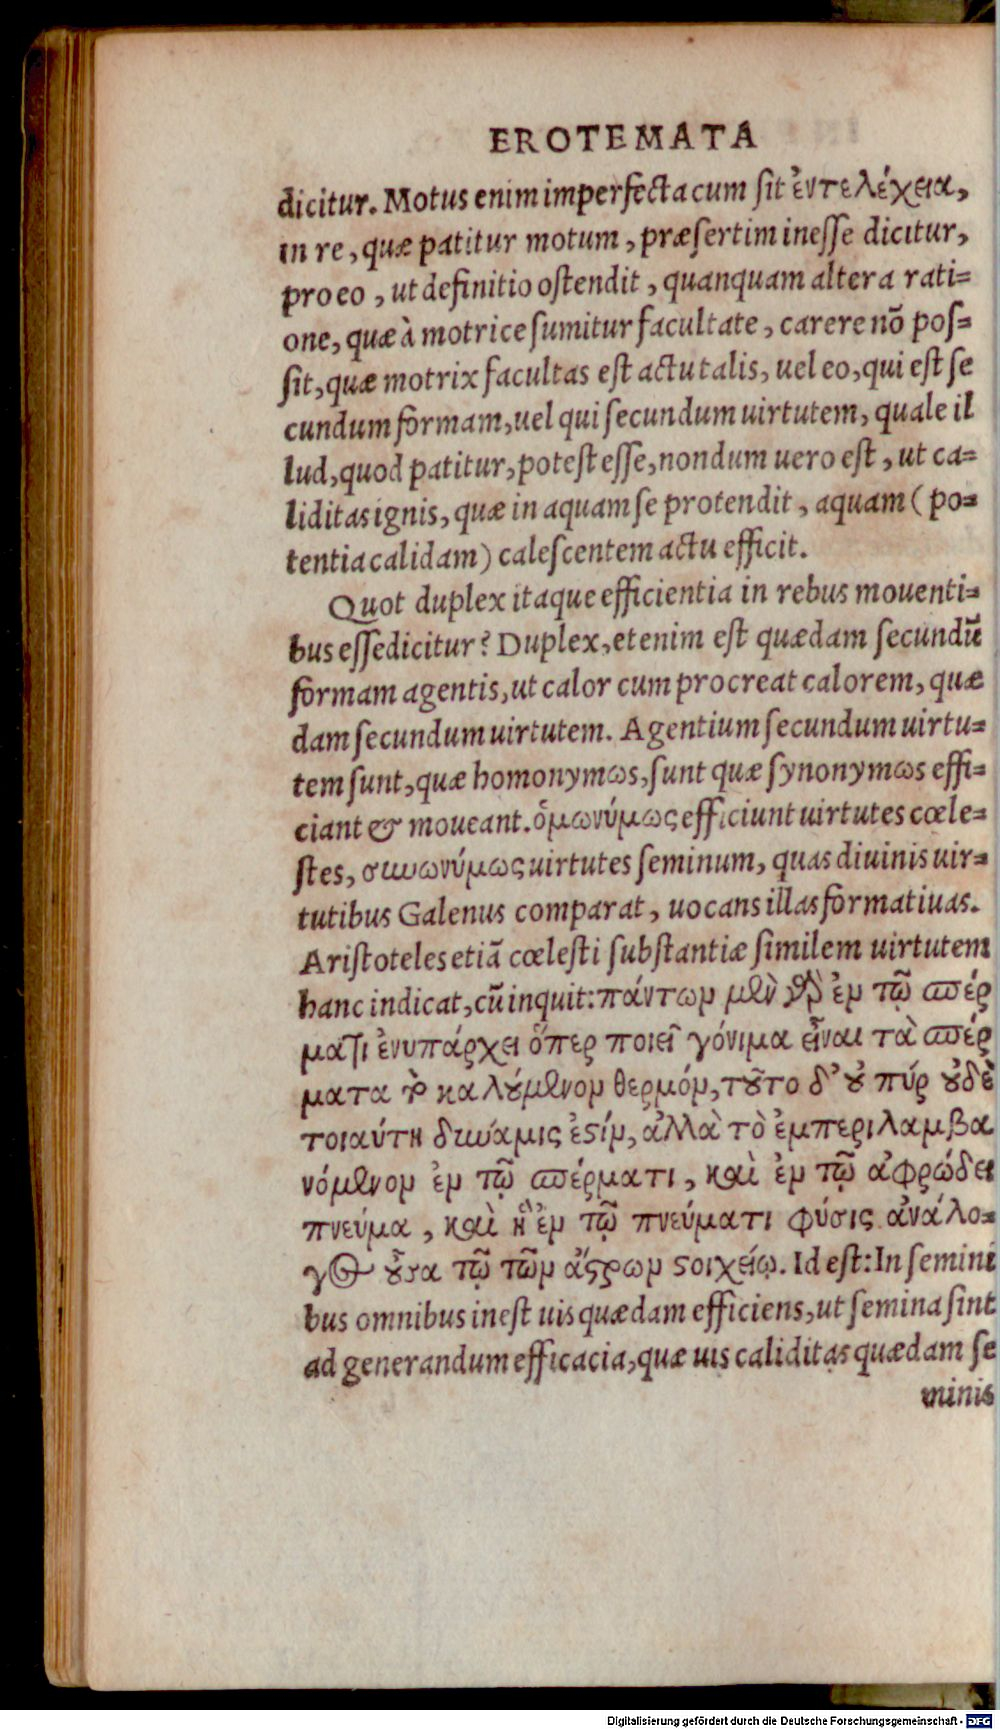 EROTEMATA
dicitur. Motus enim imperfecta cum ſit ἐντελέχεια,
in re, quæ patitur motum, præſertim ineſſe dicitur,
pro eo, ut definitio oſtendit, quanquam altera rati-
one, quæ à motrice ſumitur facultate, carere nõ poſ-
ſit, quæ motrix facultas eſt actu talis, uel eo, qui eſt ſe
cundum formam, uel qui ſecundum uirtutem, quale il
lud, quod patitur, poteſt eſſe, nondum uero eſt, ut ca-
liditas ignis, quæ in aquam ſe protendit, aquam (po-
tentia calidam) caleſcentem actu efficit.
Quot duplex itaque efficientia in rebus mouenti-
bus eſſe dicitur? Duplex, etenim eſt quædam ſecundũ
formam agentis, ut calor cum procreat calorem, quæ
dam ſecundum uirtutem. Agentium ſecundum uirtu-
tem ſunt, quæ homonymωs, ſunt quæ ſynonymωs effi-
ciant & moueant. ὁμωνύμως efficiunt uirtutes cœle-
ſtes, συνωνύμως uirtutes ſeminum, quas diuinis uir-
tutibus Galenus comparat, uocans illas formatiuas.
Ariſtoteles etiã cœleſti ſubſtantiæ ſimilem uirtutem
hanc indicat, cũ inquit: πάντωμ μὲν γὰρ ἐμ τῷ σπέρ
ματι ἐνυπάρχει ὅπερ ποιεῖ γόνιμα εἶναι τὰ σπέρ
ματα τὸ καλούμενομ θερμόμ, τοῦτο δ' οὐ πύρ οὐδὲ
τοιαύτη δύναμις ἐστίμ, ἀλλὰ τὸ ἐμπεριλαμβα
νόμενομ ἐμ τῷ σπέρματι, καὶ ἐμ τῷ ἀφρώδει
πνεύμα, καὶ ἡ ἐμ τῷ πνεύματι φύσις ἀνάλο-
γος οὖσα τῷ τῶμ ἄστρωμ στοιχείῳ. Id eſt: In ſemini
bus omnibus ineſt uis quædam efficiens, ut ſemina ſint
ad generandum efficacia, quæ uis caliditas quædam ſe
minis
Digitalisierung gefördert durch die Deutsche Forschungsgemeinschaft - DFG